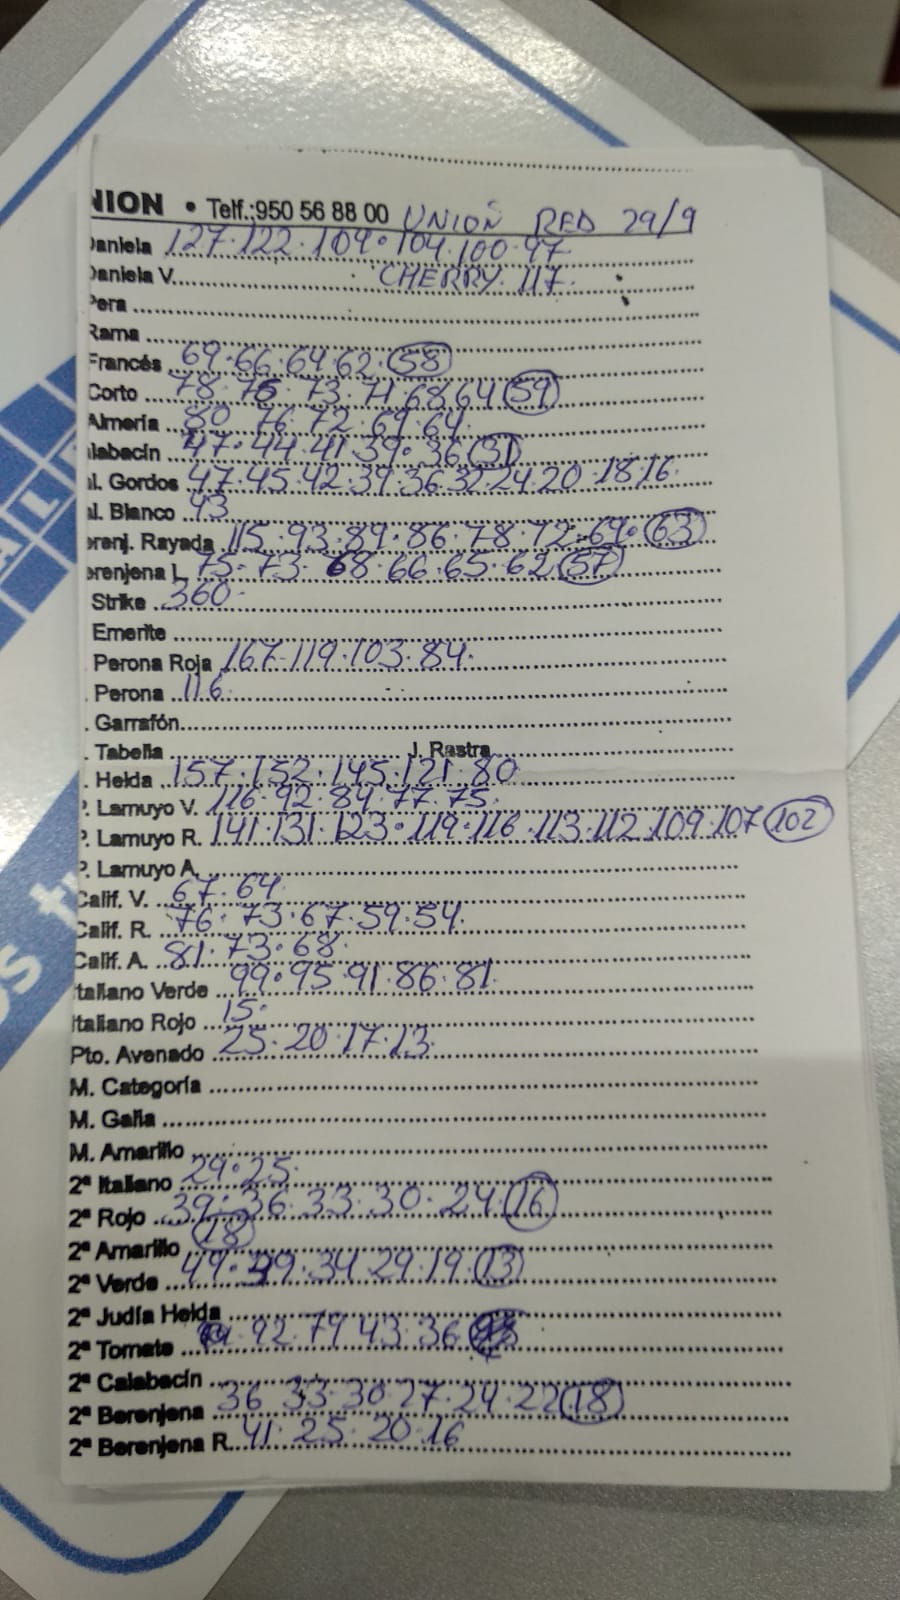 NION • Telf.:950 56 88 00 UNION RED 29/9
Daniela 127·122·109·104·100·97
Daniela V. CHERRY·117·
Pera
Rama
Francés 69·66·64·62·58
Corto 78·75·73·71·68 64 59
Almería 80 76·72·69·64·
alabacín 47·44·41·39·36 31
al. Gordos 47·45·42·39·36·32·24·20·18·16·
al. Blanco 43
erenj. Rayada 115·93·89·86·78·72·69·63
erenjena L 75·73·68·66·65·62 57
Strike 360·
Emerite
Perona Roja 167·119·103·84·
Perona 116·
Garrafón
Tabella J. Rastra
Helda 157·152·145·121·80
P. Lamuyo V. 116·92·84·77·75·
P. Lamuyo R. 141·131·123·119·116·113·112·109·107 102
P. Lamuyo A.
Calif. V. 67·64
Calif. R. 76·73·67·59·54·
Calif. A. 81·73·68·
Italiano Verde 99·95·91·86·81
Italiano Rojo 15·
Pto. Avenado 25·20·17·13·
M. Categoría
M. Galia
M. Amarillo
2ª Italiano 29·25·
2ª Rojo 39·36·33·30·24·16
2ª Amarillo 18
2ª Verde 49·39·34·29·19·13
2ª Judía Helda
2ª Tomate 92·79·43·36
2ª Calabacín
2ª Berenjena 36·33·30·27·24·22 18
2ª Berenjena R. 41·25·20·16